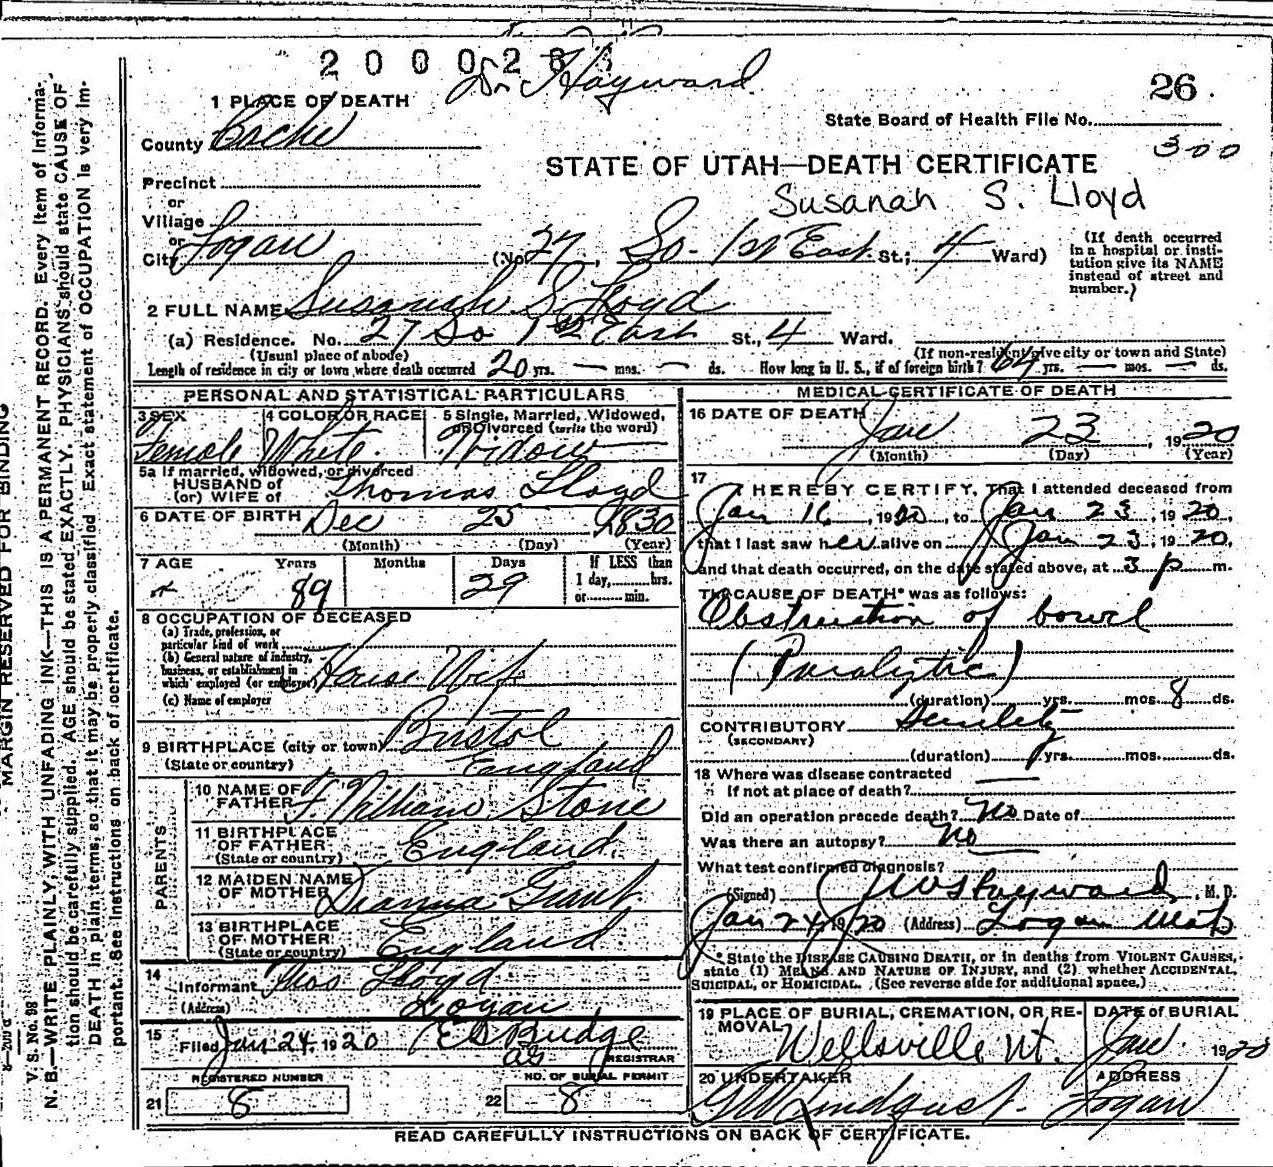 2 0 0 0 2 6 1
Dr Hayward
26.
1 PLACE OF DEATH
State Board of Health File No.
300
County Cache
STATE OF UTAH—DEATH CERTIFICATE
Precinct
Susanah S. Lloyd
or
Village
or
City Logan (No. 27, So. 1st East St.; 4 Ward)
(If death occurred in a hospital or insti-
tution give its NAME
instead of street and
number.)
2 FULL NAME Susanah S. Lloyd
(a) Residence. No. 27 So 1st East St., 4 Ward.
(Usual place of abode)
(If non-resident give city or town and State)
Length of residence in city or town where death occurred 20 yrs. — mos. — ds. How long in U. S., if of foreign birth? 64 yrs. — mos. — ds.
PERSONAL AND STATISTICAL PARTICULARS
3 SEX
Female
4 COLOR OR RACE
White
5 Single, Married, Widowed,
or Divorced (write the word)
Widow
5a If married, widowed, or divorced
HUSBAND of
(or) WIFE of Thomas Lloyd
6 DATE OF BIRTH Dec 25 1830
(Month) (Day) (Year)
7 AGE Years Months Days If LESS than
89 29 1 day,........hrs.
or........min.
8 OCCUPATION OF DECEASED
(a) Trade, profession, or
particular kind of work
(b) General nature of industry,
business, or establishment in
which employed (or employer) House Wife
(c) Name of employer
9 BIRTHPLACE (city or town) Bristol
(State or country) England
PARENTS
10 NAME OF
FATHER F. William Stone
11 BIRTHPLACE
OF FATHER
(State or country) England.
12 MAIDEN NAME
OF MOTHER Dianna Grant.
13 BIRTHPLACE
OF MOTHER
(State or country) England
14
Informant Thos Lloyd
(Address) Logan
15
Filed Jan 24, 1920 E S Budge
REGISTRAR
REGISTERED NUMBER
21 8
NO. OF BURIAL PERMIT
22 8
MEDICAL CERTIFICATE OF DEATH
16 DATE OF DEATH
Jan 23, 1920
(Month) (Day) (Year)
17
I HEREBY CERTIFY, That I attended deceased from
Jan 16, 1920, to Jan 23, 1920,
that I last saw her alive on Jan 23, 1920,
and that death occurred, on the date stated above, at 3 p m.
The CAUSE OF DEATH* was as follows:
Obstruction of bowel
(Paralytic)
(duration) yrs. mos. 8 ds.
CONTRIBUTORY Senility
(SECONDARY)
(duration) yrs. mos. ds.
18 Where was disease contracted
If not at place of death?
Did an operation precede death? No Date of
Was there an autopsy? No
What test confirmed diagnosis?
(Signed) Hayward, M. D.
Jan 24, 1920 (Address) Logan Utah
* State the DISEASE CAUSING DEATH, or in deaths from VIOLENT CAUSES,
state (1) MEANS AND NATURE OF INJURY, and (2) whether ACCIDENTAL,
SUICIDAL, or HOMICIDAL. (See reverse side for additional space.)
19 PLACE OF BURIAL, CREMATION, OR RE-
MOVAL Wellsville Ut.
DATE of BURIAL
Jan. 1920
20 UNDERTAKER
Lindquist
ADDRESS
Logan
READ CAREFULLY INSTRUCTIONS ON BACK OF CERTIFICATE.
MARGIN RESERVED FOR BINDING
V. S. No. 98
N. B.—WRITE PLAINLY, WITH UNFADING INK—THIS IS A PERMANENT RECORD. Every item of informa-
tion should be carefully supplied. AGE should be stated EXACTLY. PHYSICIANS should state CAUSE OF
DEATH in plain terms, so that it may be properly classified. Exact statement of OCCUPATION is very im-
portant. See instructions on back of certificate.